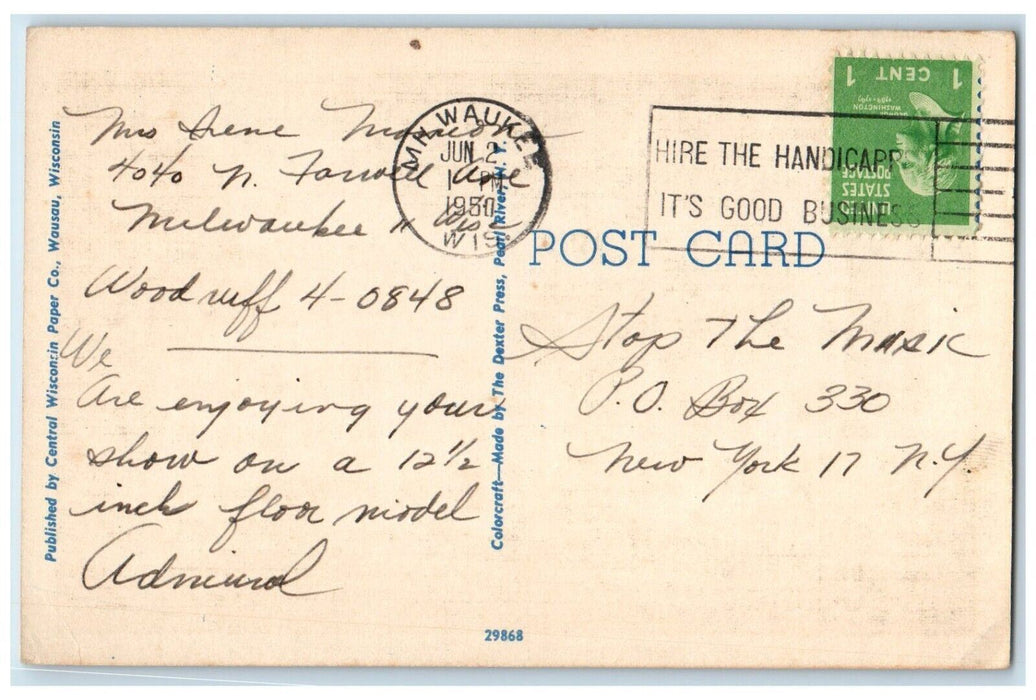 Mrs Irene
4040 N. Farwell Ave
Milwaukee 11 Wis
Woodruff 4-0848
We
Are enjoying your
show on a 12 1/2
inch floor model
Admiral
MILWAUKEE
JUN 2
PM
1950
WIS.
HIRE THE HANDICAPP
IT'S GOOD BUSINESS
1 CENT 1
GEORGE WASHINGTON
1789-1797
UNITED
STATES
POSTAGE
POST CARD
Stop The Music
P.O. Box 330
New York 17 N.Y.
Published by Central Wisconsin Paper Co., Wausau, Wisconsin
Colorcraft—Made by The Dexter Press, Pearl River, N. Y.
29868